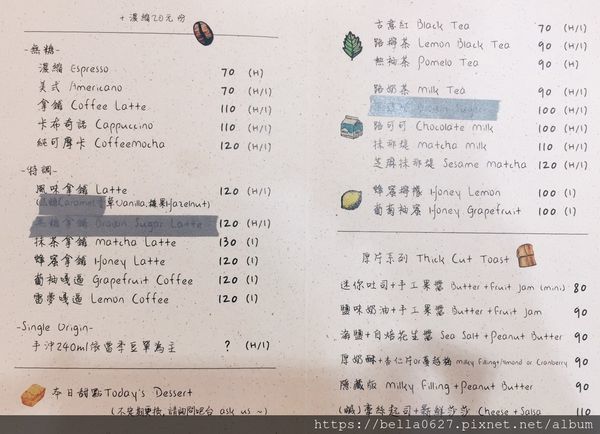 +濃縮20元/份
-無糖-
濃縮 Espresso 70 (H)
美式 Americano 70 (H/I)
拿鋪 Coffee Latte 110 (H/I)
卡布奇諾 Cappuccino 110 (H/I)
純可摩卡 Coffeemocha 120 (H/I)
-特調-
風味拿鋪 Latte 120 (H/I)
Caramel 香草Vanilla, 榛果Hazelnut)
黑糖拿鋪 Brown Sugar Latte 120 (H/I)
抹茶拿鋪 matcha Latte 130 (I)
蜂蜜拿鋪 Honey Latte 120 (I)
葡柚嘎逼 Grapefruit Coffee 120 (I)
雷夢嘎逼 Lemon Coffee 120 (I)
-Single Origin-
手沖240ml依當季豆單為主 ? (H/I)
本日甜點Today's Dessert
(不定期更換, 請詢問吧台 ask us ~)
古意紅 Black Tea 70 (H/I)
路檸茶 Lemon Black Tea 90 (H/I)
熱柚茶 Pomelo Tea 90 (H)
路奶茶 Milk Tea 90 (H/I)
Brown Sugar 100 (H/I)
路可可 Chocolate milk 100 (H/I)
抹那堤 matcha milk 110 (H/I)
芝麻抹那堤 Sesame matcha 120 (H/I)
蜂蜜檸檬 Honey Lemon 100 (I)
葡萄柚蜜 Honey Grapefruit 100 (I)
厚片系列 Thick Cut Toast
迷你吐司+手工果醬 Butter+Fruit Jam (mini) 80
鹽味奶油+手工果醬 Butter+Fruit Jam 90
海鹽+自焙花生醬 Sea Salt+Peanut Butter 90
厚奶酥+杏仁片or蔓越莓 Milky Filling+Almond or Cranberry 90
隱藏版 Milky filling+Peanut Butter 90
(鹹)牽絲起司+新鮮莎莎 Cheese+Salsa 110
https://bella0627.pixnet.net/album